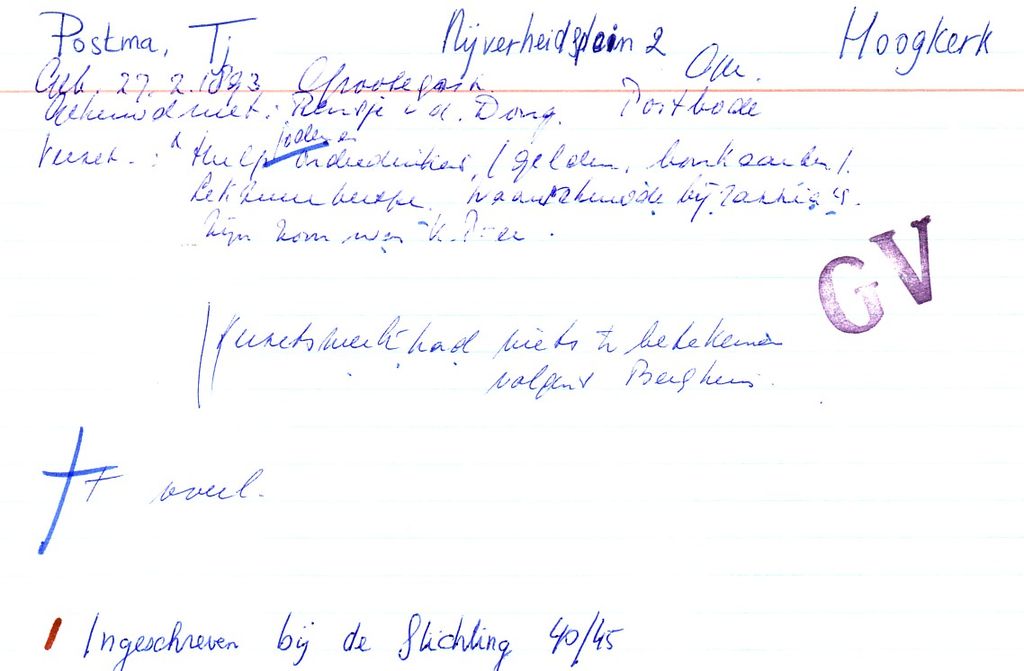 Postma, Tj Nijverheidsplein 2 Hoogkerk
Geb. 27.2.1893 Grootegast. Opm.
Gehuwd met: Rensje v.d. Dong. Postbode
Verzet.: Hulp joden en onderduikers, (gelden, bonkaarten).
bij
Zijn zoon was
GV
Verzetswerk had niets te betekenen
volgens Berghuis.
† overl.
Ingeschreven bij de Stichting 40/45